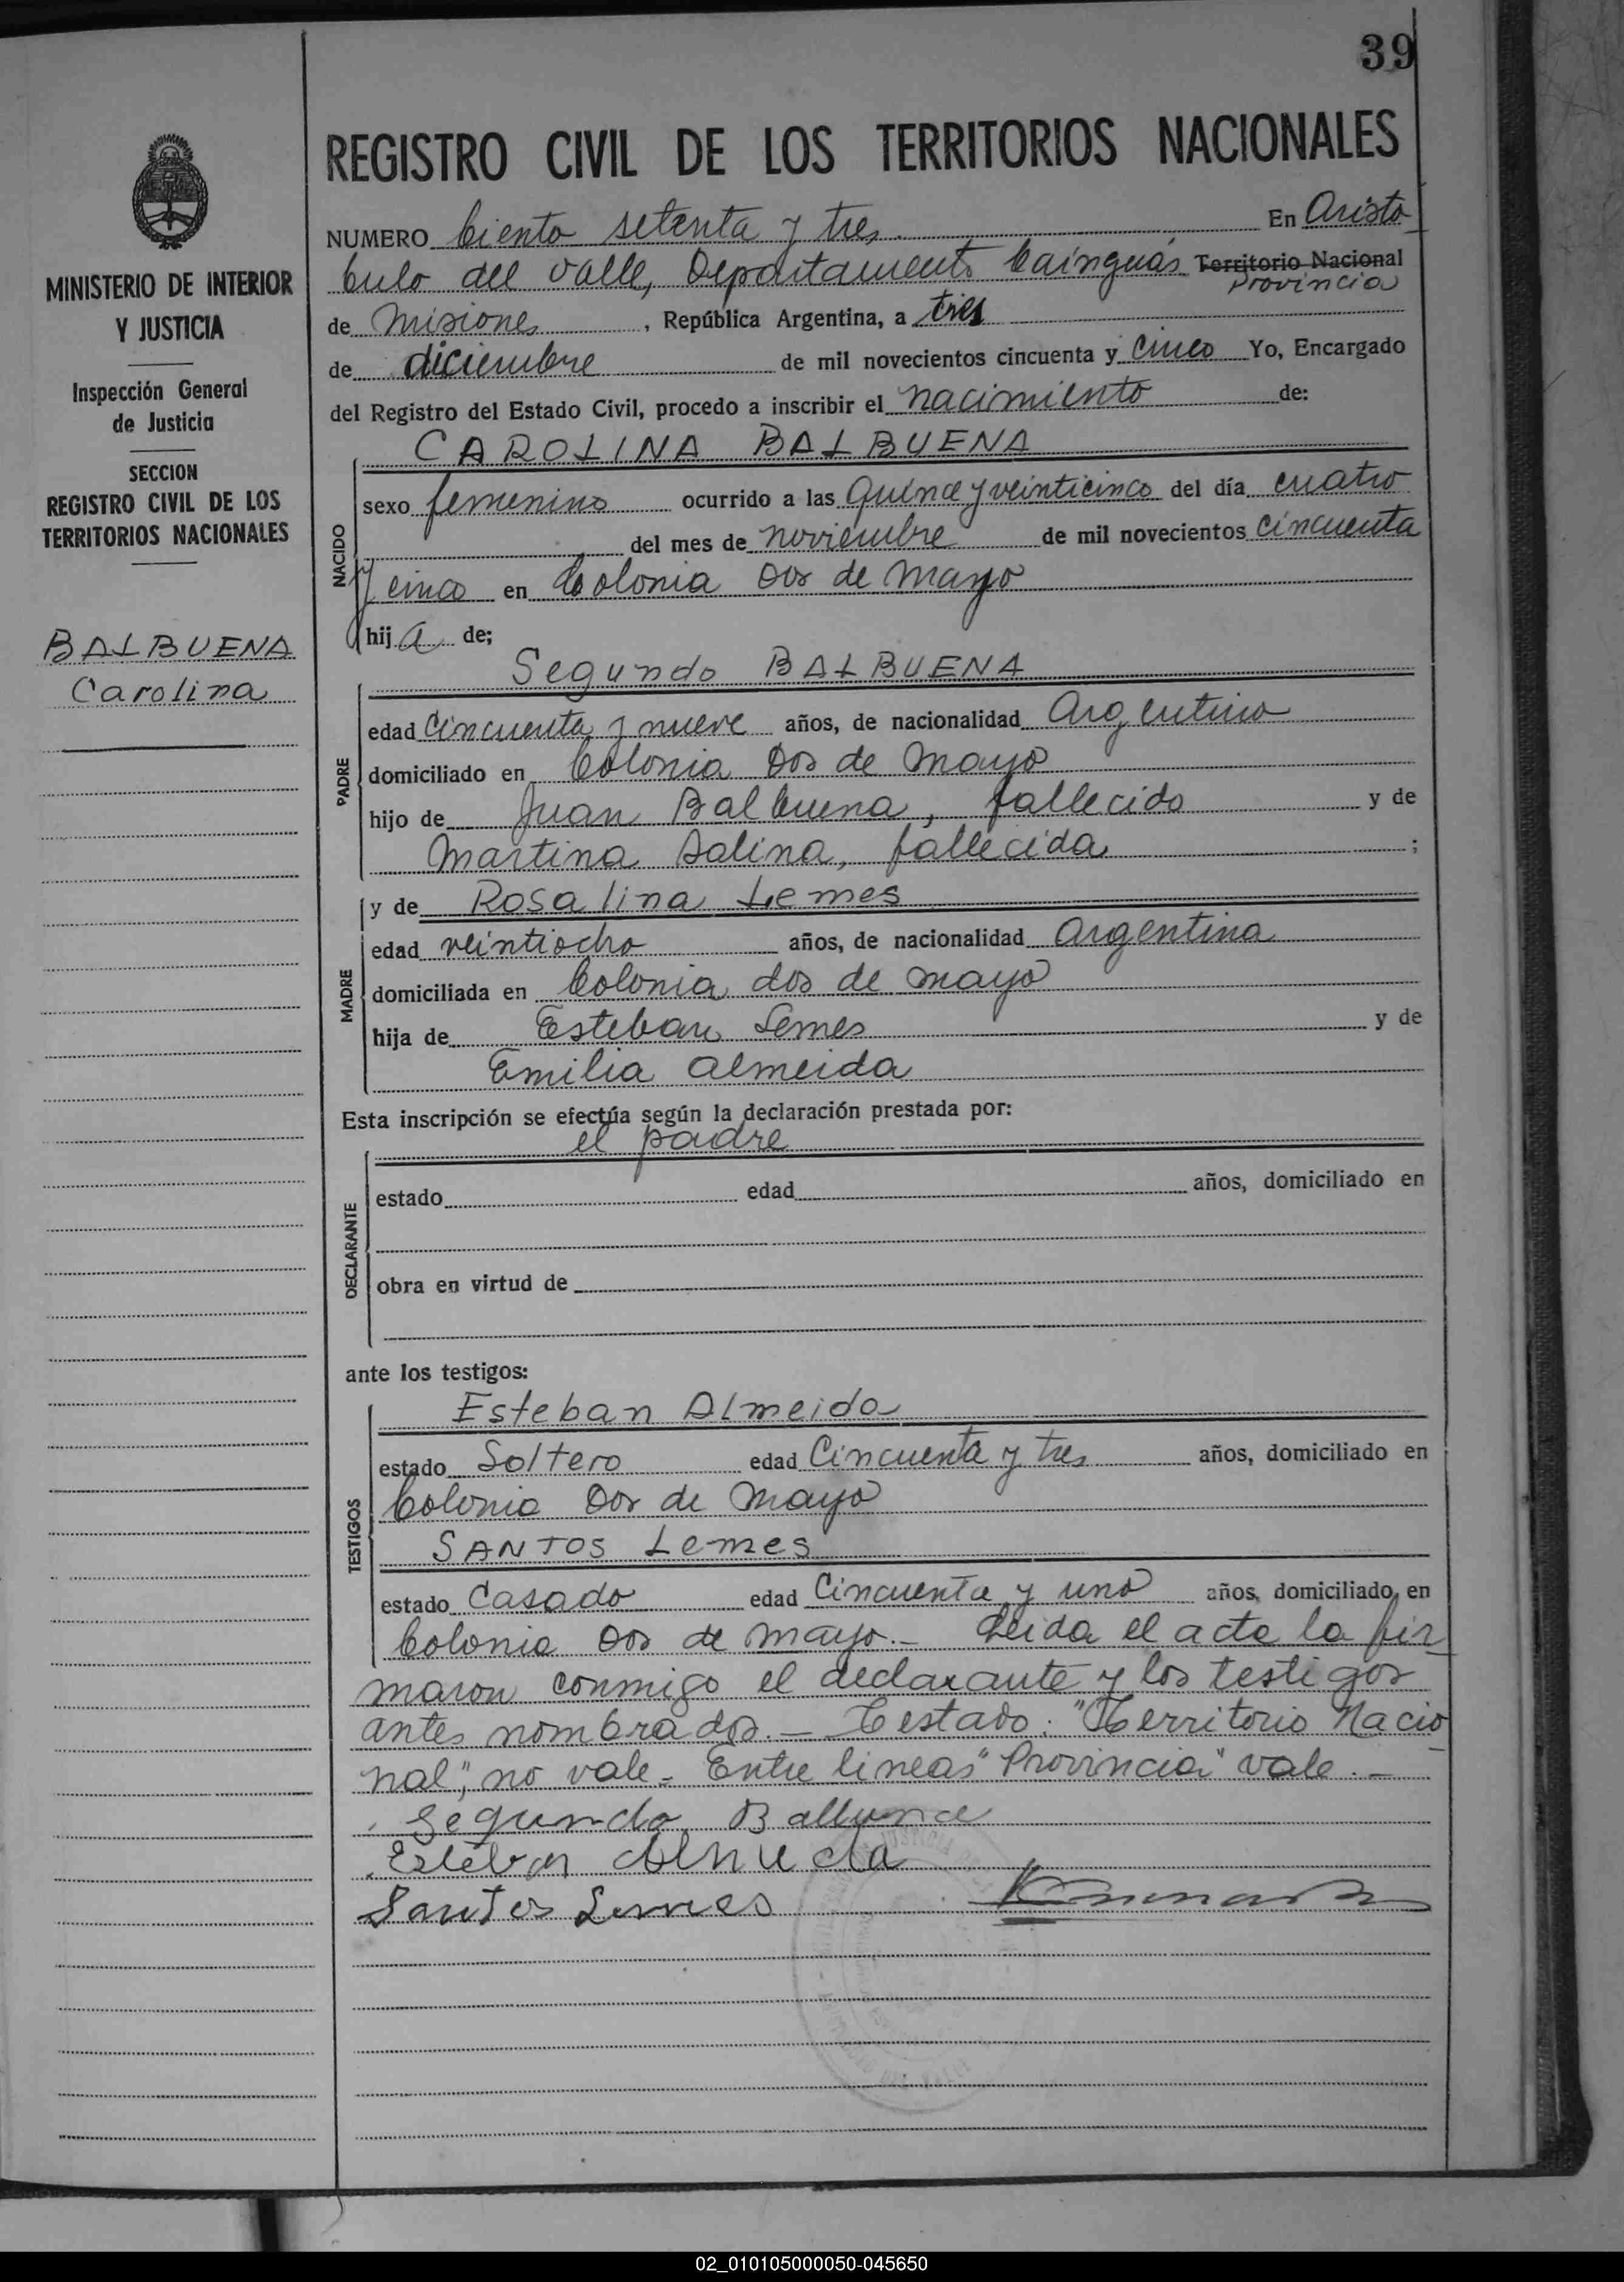 39
REGISTRO CIVIL DE LOS TERRITORIOS NACIONALES
MINISTERIO DE INTERIOR
Y JUSTICIA
Inspección General
de Justicia
SECCION
REGISTRO CIVIL DE LOS
TERRITORIOS NACIONALES
BALBUENA
Carolina
NUMERO Ciento setenta y tres En Aristo
bulo del valle, Departamento Cainguás Territorio Nacional
Provincia
de Misiones, República Argentina, a tres
de diciembre de mil novecientos cincuenta y cinco Yo, Encargado
del Registro del Estado Civil, procedo a inscribir el nacimiento de:
CAROLINA BALBUENA
NACIDO
sexo femenino ocurrido a las Quince y veinticinco del día cuatro
del mes de noviembre de mil novecientos cincuenta
y cinco en Colonia Dos de Mayo
hija de;
Segundo BALBUENA
PADRE
edad Cincuenta y nueve años, de nacionalidad Argentino
domiciliado en Colonia Dos de Mayo
hijo de Juan Balbuena, fallecido y de
Martina Salina, fallecida ;
y de Rosalina Lemes
MADRE
edad veintiocho años, de nacionalidad Argentina
domiciliada en Colonia dos de mayo
hija de Esteban Lemes y de
Emilia Almeida
Esta inscripción se efectúa según la declaración prestada por:
el padre
DECLARANTE
estado edad años, domiciliado en
obra en virtud de
ante los testigos:
Esteban Almeida
TESTIGOS
estado Soltero edad Cincuenta y tres años, domiciliado en
Colonia Dos de Mayo
SANTOS Lemes
estado Casado edad Cincuenta y uno años, domiciliado en
Colonia Dos de Mayo.- Leida el acta la fir
maron conmigo el declarante y los testigos
antes nombrados.- Testado: "Territorio Nacio
nal", no vale.- Entre lineas "Provincia" vale.-
Segundo Balbuna
Esteban Almeida
Santos Lemes
02_010105000050-045650